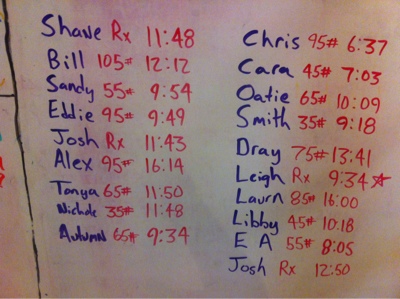 Shane Rx 11:48
Bill 105# 12:12
Sandy 55# 9:54
Eddie 95# 9:49
Josh Rx 11:43
Alex 95# 16:14
Tanya 65# 11:50
Nichole 35# 11:48
Autumn 65# 9:34
Chris 95# 6:37
Cara 45# 7:03
Oatie 65# 10:09
Smith 35# 9:18
Dray 75# 13:41
Leigh Rx 9:34
Laurn 85# 16:00
Libby 45# 10:18
E A 55# 8:05
Josh Rx 12:50